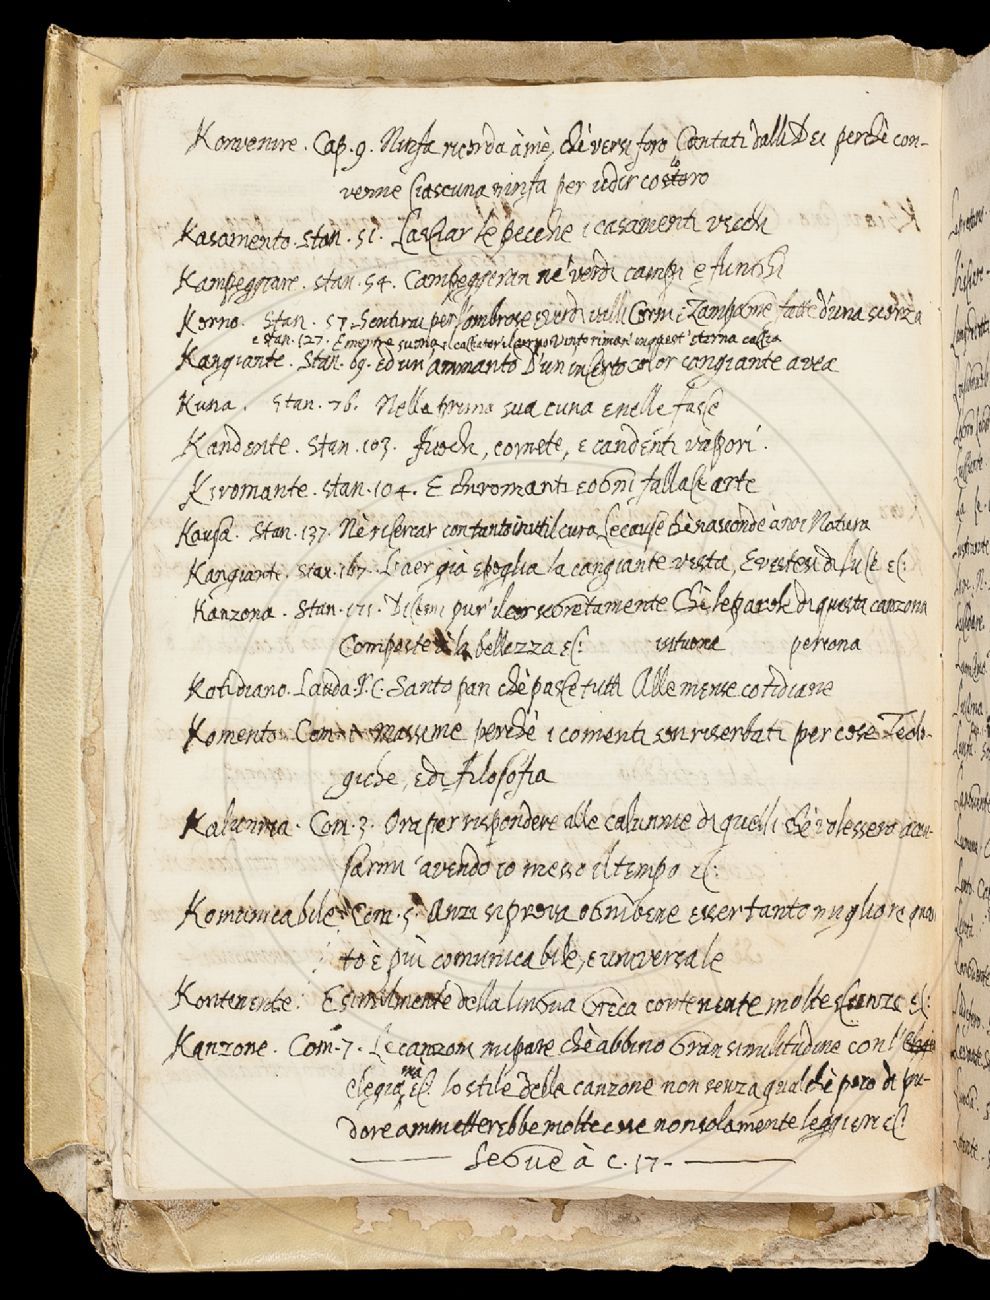 Konvenire. Cap. 9. Ninfa ricorda à mè, chè versi foro Cantati dalli Dei perchè con-
venne Ciascuna ninfa per udir costoro
Kasamento. Stan. 51. Lasciar le pecche i casamenti vecchi
Kampeggiare. Stan. 54. Campeggeran ne' verdi campi e funchi
Korno. Stan. 57. Sentirai per l'ombrose e verdi valli Corni e Zampogne fatte d'una scorza
e Stan. 127. E mentre suona il cacciator il corno
Kangiante. Stan. 69. Ed un'ammanto D'un incerto color cangiante avea
Kuna. Stan. 76. Nella prima sua cuna e nelle fasce
Kandente. Stan. 103. Fuochi, comete, e candenti vapori.
Kiromante. Stan. 104. E chiromanti e ogni fallace arte
Kausa. Stan. 137. Nè ricercar con tanto inutil cura Le cause chè nasconde à noi Natura
Kangiante. Stan. 167. L'aer già spoglia la cangiante vesta, E vestesi di luce ec:
Kanzona. Stan. 171. Dicemi pur' ilor secretamente Chè le parole di questa canzona
Composte à la bellezza ec: persona
Kotidiano. Lauda. J. C. Santo pan chè pasce tutti Alle mense cotidiane
Komento. Com. 1. Massime perchè i comenti son riserbati per cose Teolo-
giche, e di filosofia
Kalunnia. Com. 3. Ora per rispondere alle calunnie di quelli chè volessero accu-
sarmi avendo io messo il tempo ec:
Komunicabile. Com. 5. Anzi si prova ogni bene esser tanto migliore quan
to è più comunicabile, e universale
Kontenente. E similmente della lingua Greca contenente molte scienze ec:
Kanzone. Com. 7. Le canzoni mi pare chè abbino gran similitudine con l'elegia
elegia, ma ec: lo stile della canzone non senza qualchè pero di pu-
dore ammetterebbe molte cose non solamente leggieri ec:
Segue à c. 17.